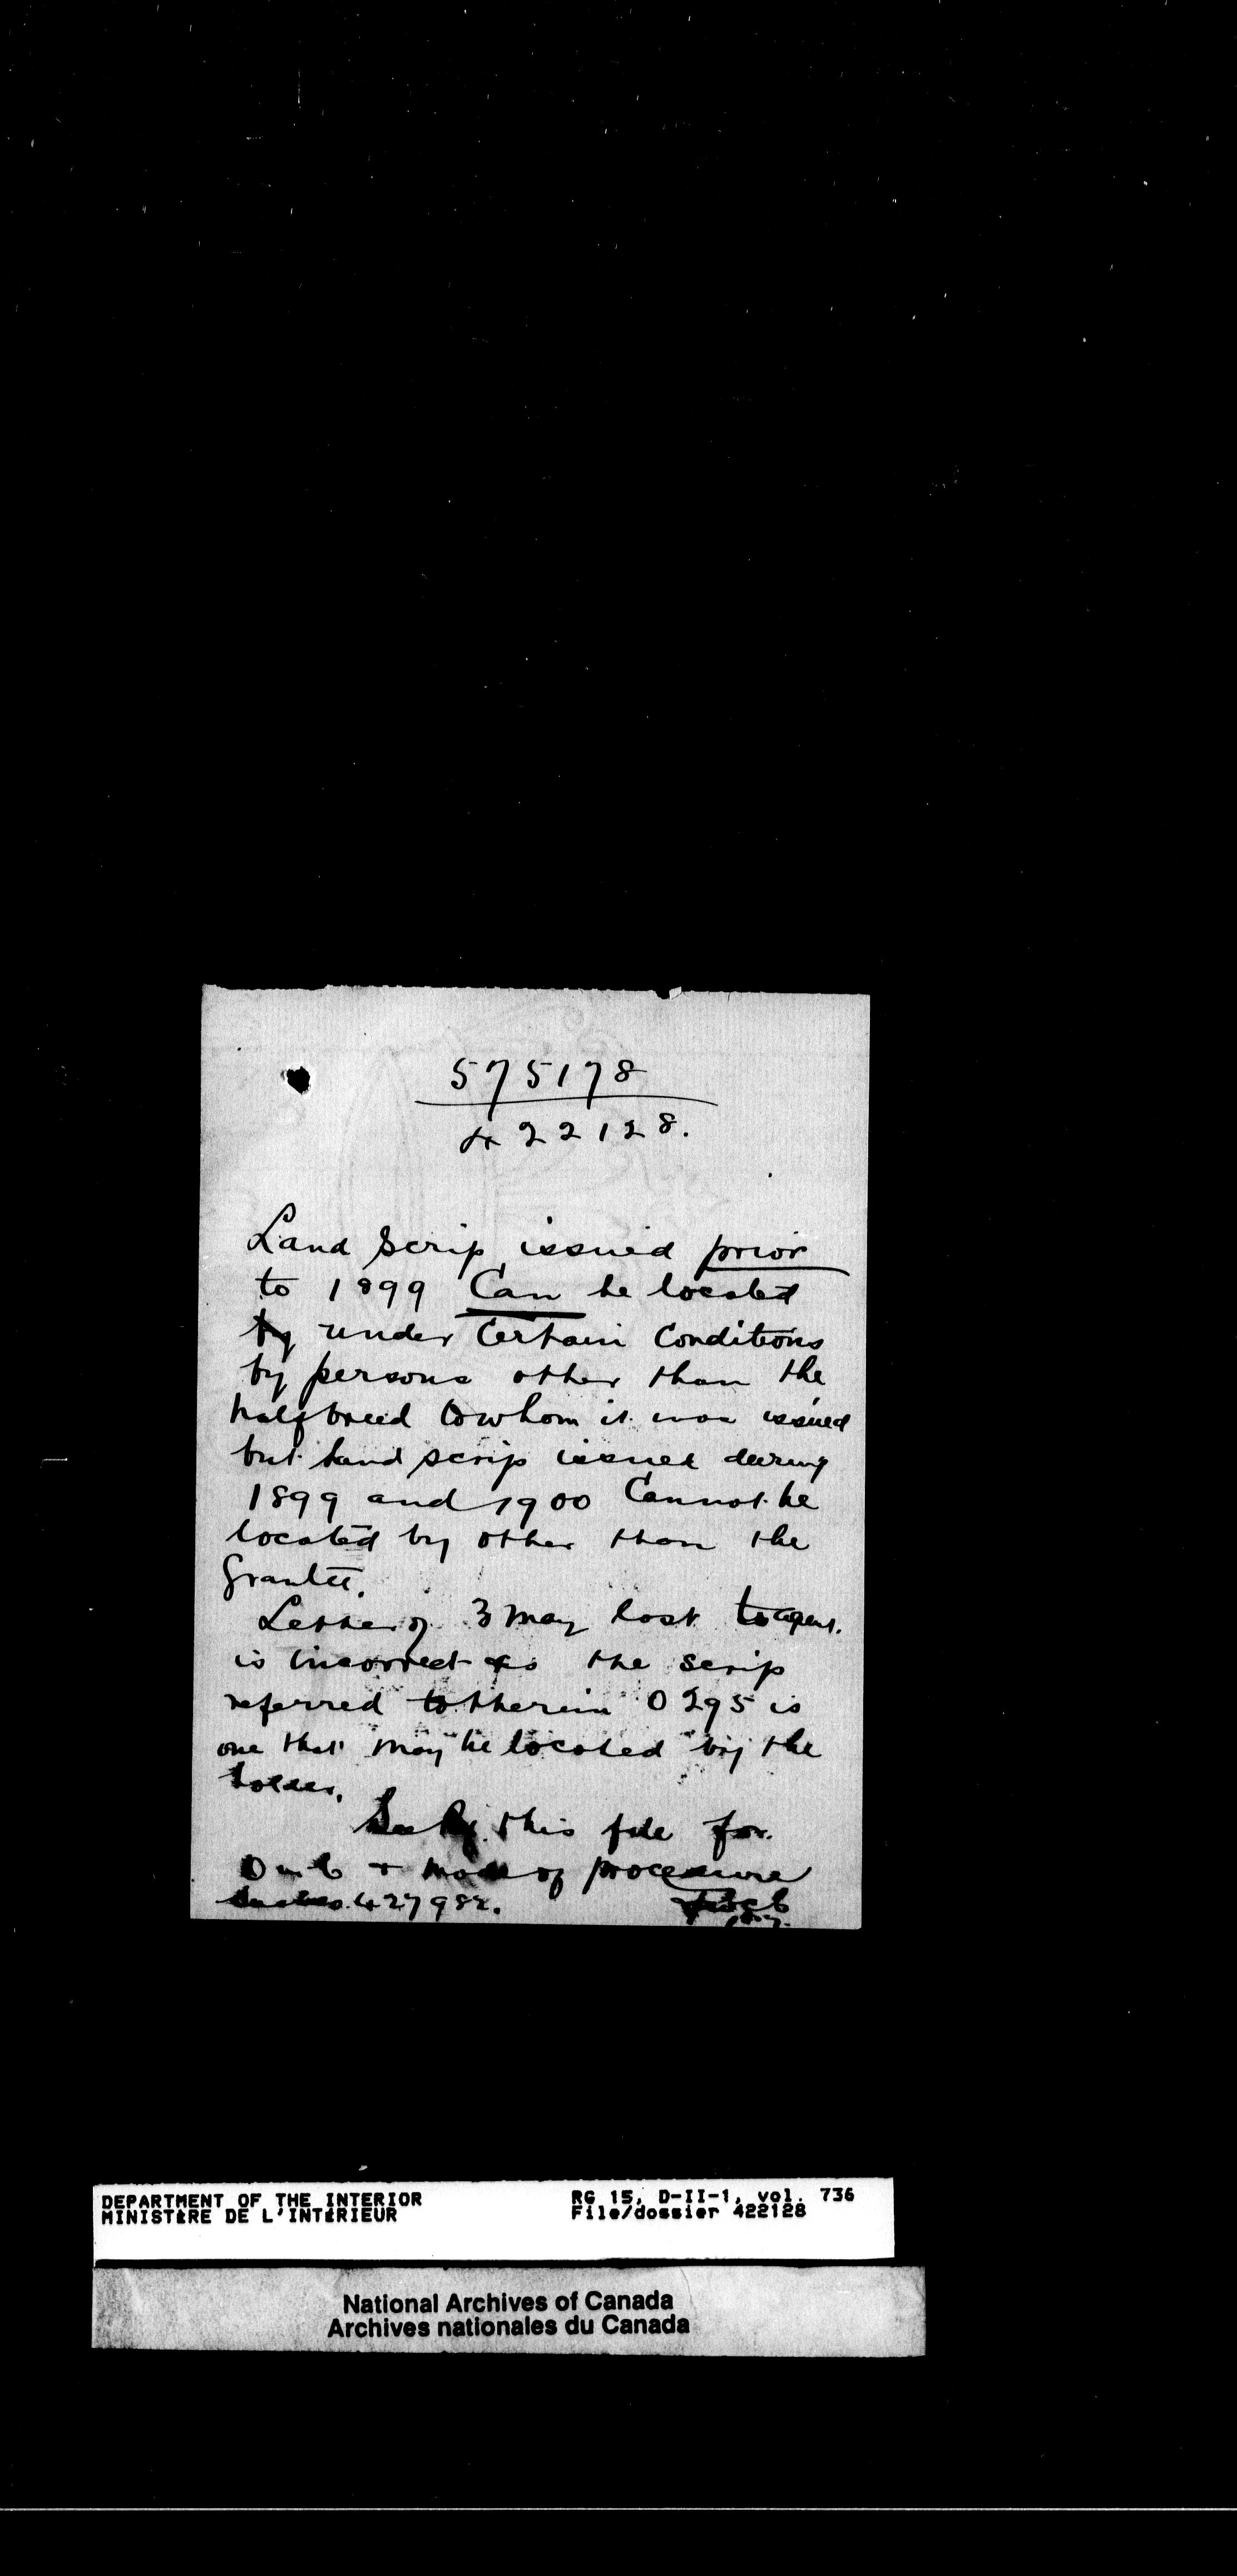 575178
422128.
Land Scrip issued prior
to 1899 Can be located
by under Certain Conditions
by persons other than the
halfbreed to whom it was issued
but land scrip issued during
1899 and 1900 Cannot be
located by other than the
Grantee.
Letter of 3 May last to agent.
is incorrect as the scrip
referred to therein 0295 is
one that may be located by the
holder.
See this file for
& mode of procedure
427982.
DEPARTMENT OF THE INTERIOR
MINISTÈRE DE L'INTÉRIEUR
RG 15, D-II-1, vol. 736
File/dossier 422128
National Archives of Canada
Archives nationales du Canada